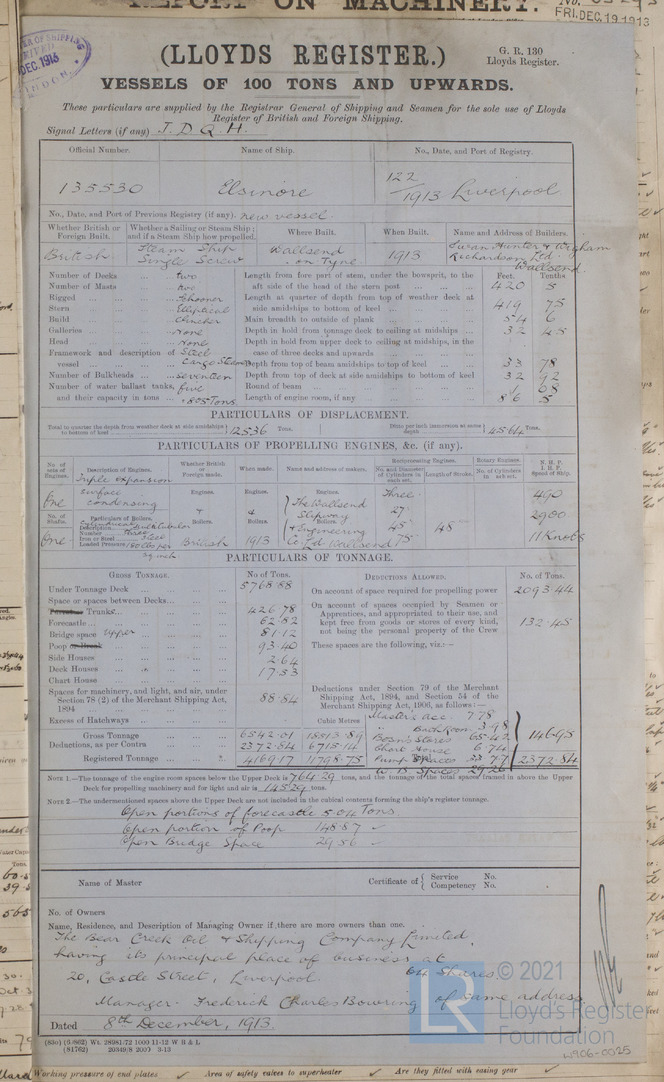 REPORT ON MACHINERY.
FRI. DEC. 19 1913
OF SHIPPING
DEC. 1913
(LLOYDS REGISTER.)
G. R. 130
Lloyds Register.
VESSELS OF 100 TONS AND UPWARDS.
These particulars are supplied by the Registrar General of Shipping and Seamen for the sole use of Lloyds
Register of British and Foreign Shipping.
Signal Letters (if any) J. D. Q. H.
Official Number. Name of Ship. No., Date, and Port of Registry.
135530 Elsinore 122/1913 Liverpool
No., Date, and Port of Previous Registry (if any). new vessel.
Whether British or Foreign Built. Whether a Sailing or Steam Ship; and if a Steam Ship how propelled. Where Built. When Built. Name and Address of Builders.
British Steam Ship Single Screw Wallsend on Tyne 1913 Swan Hunter & Wigham Richardson Ltd. Wallsend
Feet. Tenths
Number of Decks two Length from fore part of stem, under the bowsprit, to the
Number of Masts two aft side of the head of the stern post 420 5
Rigged Schooner Length at quarter of depth from top of weather deck at
Stern Elliptical side amidships to bottom of keel 419 75
Build Clencher Main breadth to outside of plank 54 6
Galleries None Depth in hold from tonnage deck to ceiling at midships 32 45
Head None Depth in hold from upper deck to ceiling at midships, in the
Framework and description of Steel case of three decks and upwards
vessel Cargo Steamer Depth from top of beam amidships to top of keel 33 78
Number of Bulkheads seventeen Depth from top of deck at side amidships to bottom of keel 32 92
Number of water ballast tanks, five Round of beam 1 08
and their capacity in tons 1805 Tons. Length of engine room, if any 86 5
PARTICULARS OF DISPLACEMENT.
Total to quarter the depth from weather deck at side amidships to bottom of keel 12536 Tons. Ditto per inch immersion at same depth 45.64 Tons.
PARTICULARS OF PROPELLING ENGINES, &c. (if any).
No. of sets of Engines. Description of Engines. Whether British or Foreign made. When made. Name and address of makers. Reciprocating Engines. Rotary Engines. N. H. P. I. H. P. Speed of Ship.
No. and Diameter of Cylinders in each set. Length of Stroke. No. of Cylinders in each set.
One Triple expansion surface condensing Engines. Engines. Engines. Three 490
27" 2900
No. of Shafts. Particulars of Boilers. Boilers. Boilers. The Wallsend Slipway & Engineering Co. Ltd Wallsend 45" 48"
One Description Cylindrical Multitubular British 1913 75" 11 Knots
Number three
Iron or Steel Steel
Loaded Pressure 180 lbs per sq inch
PARTICULARS OF TONNAGE.
GROSS TONNAGE. No. of Tons. DEDUCTIONS ALLOWED. No. of Tons.
Under Tonnage Deck 5768.88 On account of space required for propelling power 2093.44
Space or spaces between Decks On account of spaces occupied by Seamen or
Trunks 426.78 Apprentices, and appropriated to their use, and
Forecastle 62.82 kept free from goods or stores of every kind, 132.45
Bridge space upper 81.12 not being the personal property of the Crew
Poop or Break 93.40 These spaces are the following, viz:—
Side Houses 2.64
Deck Houses 17.53
Chart House
Spaces for machinery, and light, and air, under Section 78 (2) of the Merchant Shipping Act, 1894 88.84 Deductions under Section 79 of the Merchant Shipping Act, 1894, and Section 54 of the Merchant Shipping Act, 1906, as follows:—
Excess of Hatchways Cubic Metres Master's acc. 7.78
Bath Room 3.98
Gross Tonnage 6542.01 18513.89 Bosn's Stores 65.42 146.95
Deductions, as per Contra 2372.84 6715.14 Chart House 6.74
Registered Tonnage 4169.17 11798.75 Pump Spaces 33.77 2372.84
W. B. Spaces 29.26
NOTE 1.—The tonnage of the engine room spaces below the Upper Deck is 764.29 tons, and the tonnage of the total spaces framed in above the Upper
Deck for propelling machinery and for light and air is 145.29 tons.
NOTE 2.—The undermentioned spaces above the Upper Deck are not included in the cubical contents forming the ship's register tonnage.
Open portions of forecastle 5.04 Tons.
Open portion of Poop 148.87
Open Bridge Space 29.56
Name of Master Certificate of { Service No. Competency No.
No. of Owners
Name, Residence, and Description of Managing Owner if there are more owners than one.
The Bear Creek Oil & Shipping Company Limited,
having its principal place of business at
20, Castle Street, Liverpool. 64 Shares
Manager. Frederick Charles Bowring of same address
Dated 8th December, 1913.
© 2021
LR Lloyd's Register
Foundation
W906-0025
Working pressure of end plates Area of safety valves to superheater Are they fitted with easing gear